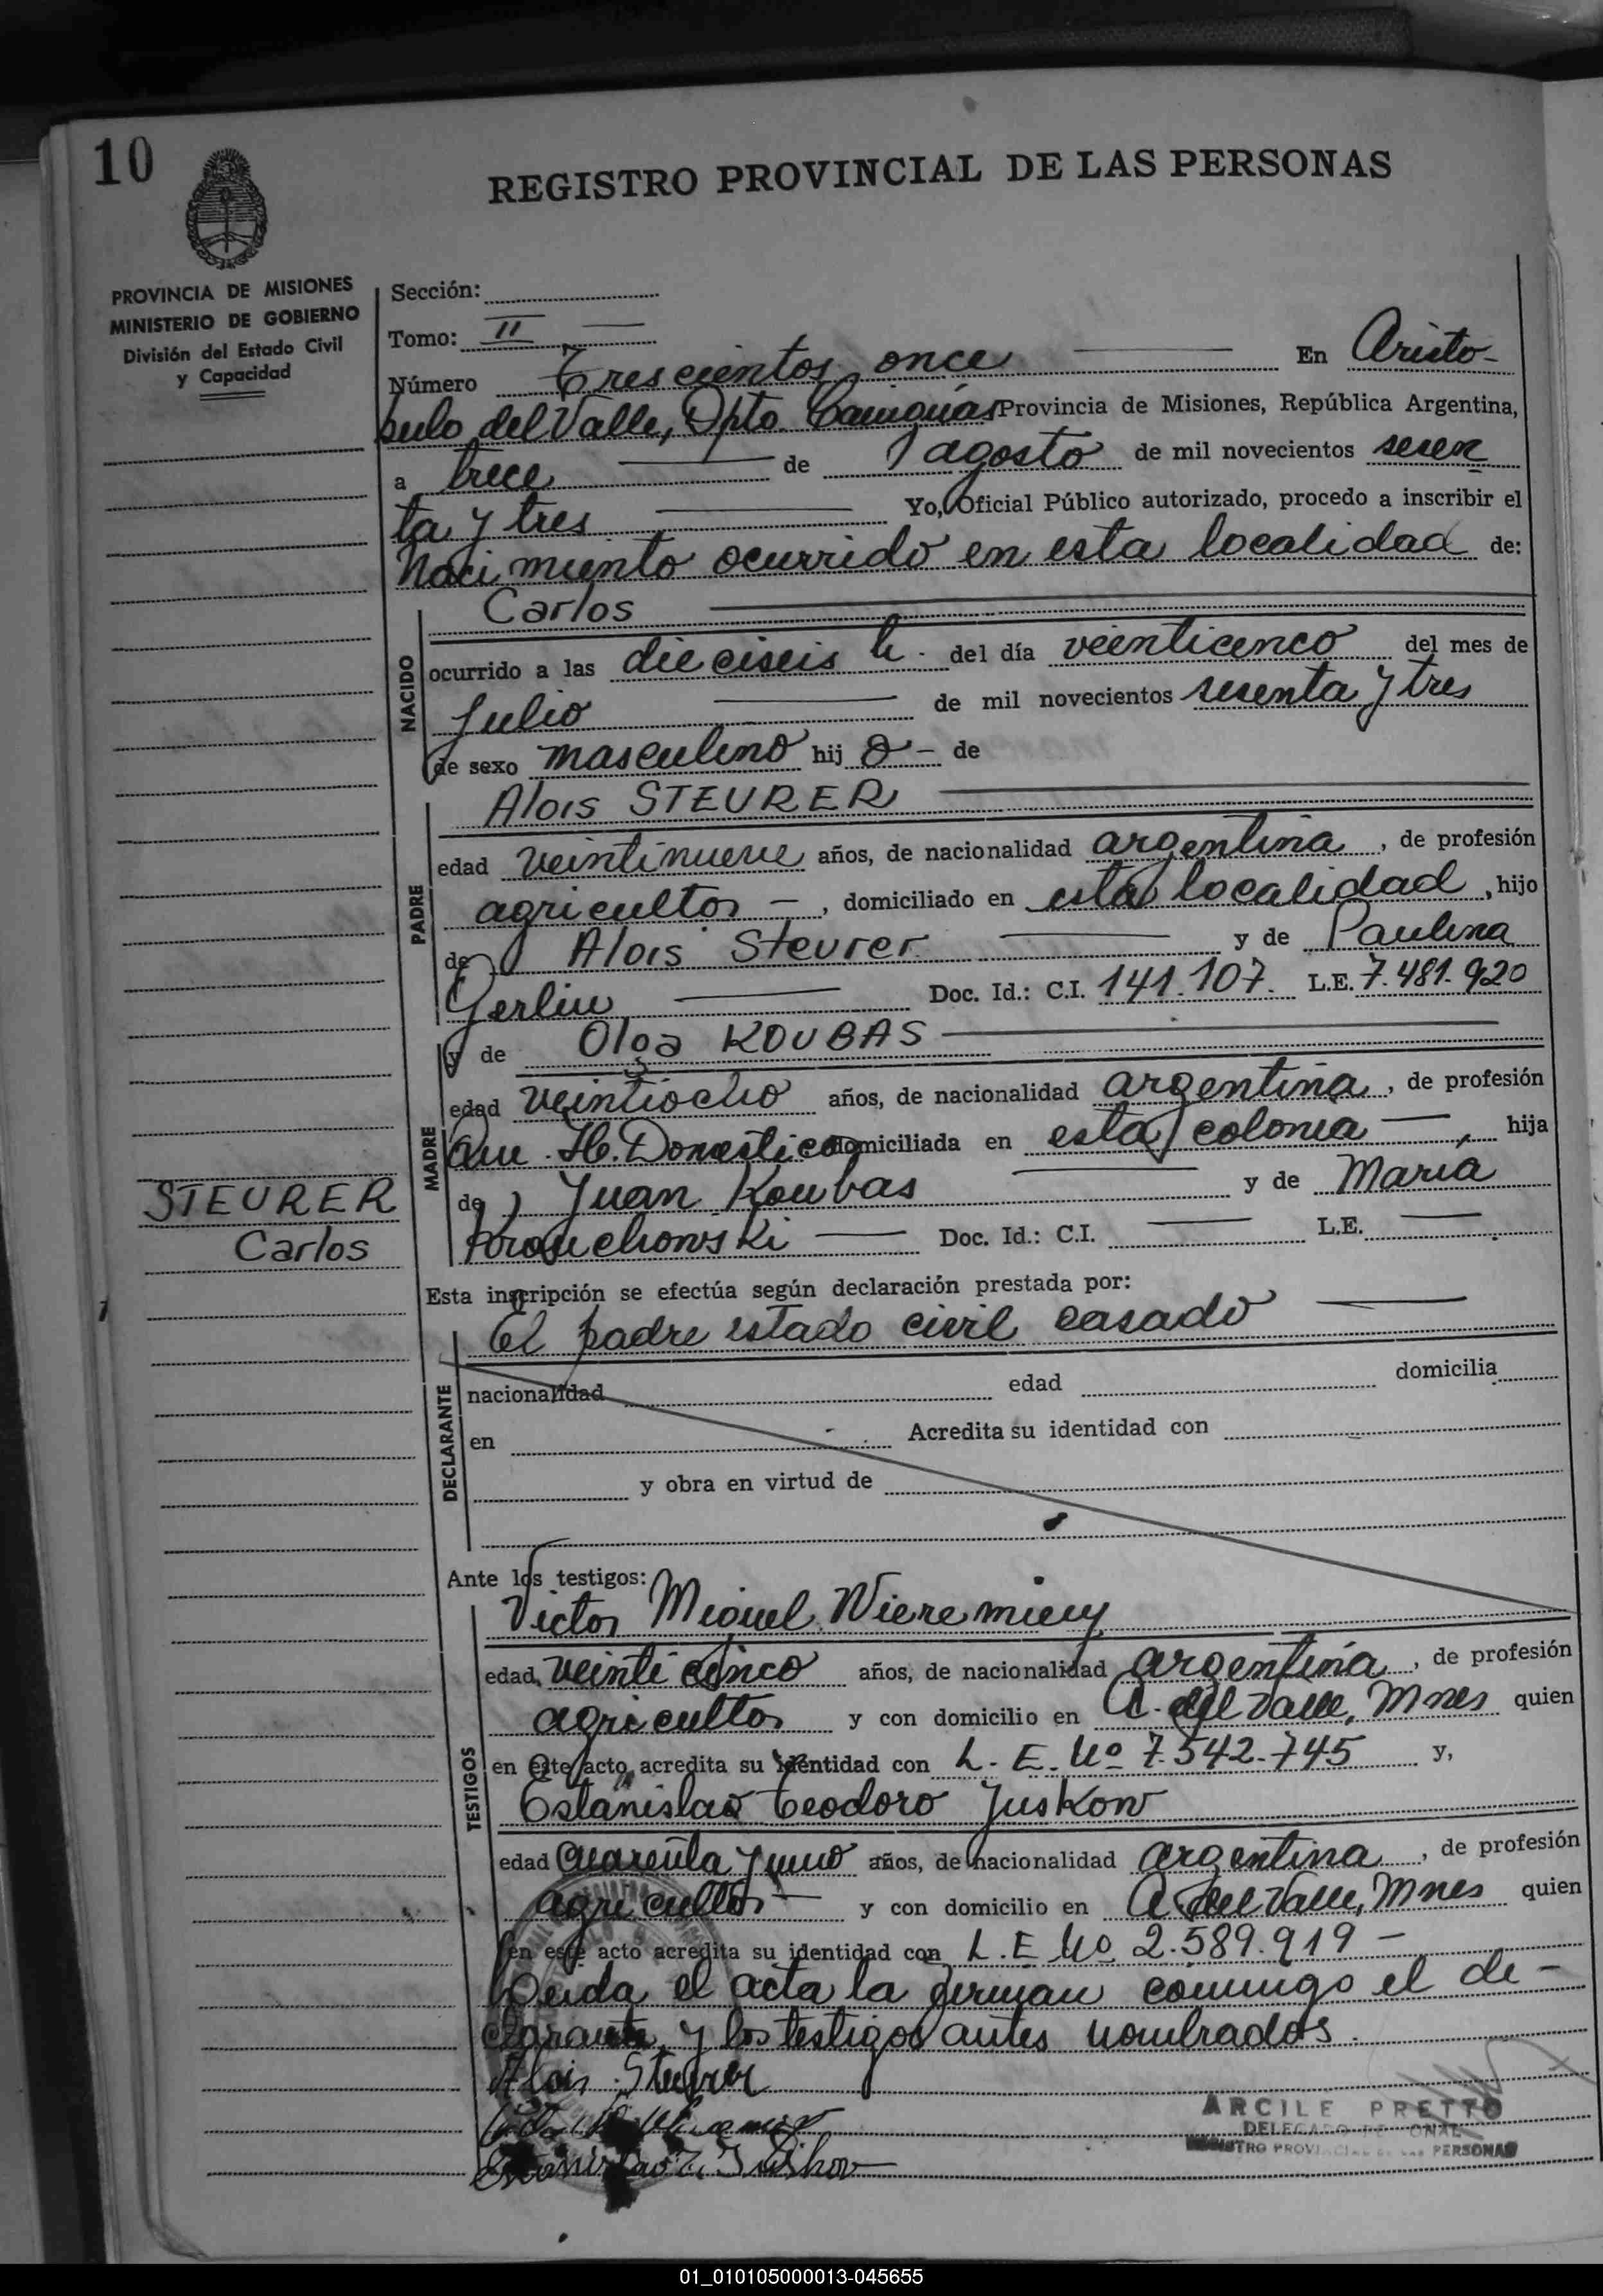 10
REGISTRO PROVINCIAL DE LAS PERSONAS
PROVINCIA DE MISIONES
MINISTERIO DE GOBIERNO
División del Estado Civil
y Capacidad
Sección:
Tomo: II
Número Trescientos once En Aristo-
bulo del Valle, Dpto. Cainguás Provincia de Misiones, República Argentina,
a trece de agosto de mil novecientos sesen
ta y tres Yo, Oficial Público autorizado, procedo a inscribir el
Nacimiento ocurrido en esta localidad de:
NACIDO
Carlos
ocurrido a las dieciseis h. del día veinticinco del mes de
Julio de mil novecientos sesenta y tres
de sexo masculino hij o - de
PADRE
Alois STEURER
edad veintinueve años, de nacionalidad argentina, de profesión
agricultor -, domiciliado en esta localidad, hijo
de Alois Steurer y de Paulina
Gerliu Doc. Id.: C.I. 141.107. L.E. 7.481.920
MADRE
y de Olga KOUBAS
edad veintiocho años, de nacionalidad argentina, de profesión
Qu. H. Domestico domiciliada en esta colonia, hija
de Juan Koubas y de Maria
Doc. Id.: C.I. L.E.
STEURER
Carlos
Esta inscripción se efectúa según declaración prestada por:
DECLARANTE
El padre estado civil casado
nacionalidad edad domicilia
en Acredita su identidad con
y obra en virtud de
Ante los testigos:
TESTIGOS
Victor Miguel
edad veinticinco años, de nacionalidad argentina, de profesión
agricultor y con domicilio en A. del Valle, Mnes quien
en este acto acredita su identidad con L. E. Nº 7.542.745 y,
Estanislao Teodoro Juskow
edad cuarenta y uno años, de nacionalidad argentina, de profesión
agricultor - y con domicilio en A. del Valle, Mnes quien
en este acto acredita su identidad con L.E Nº 2.589.919 -
Leida el acta la firman conmigo el de-
clarante y los testigos antes nombrados.
Alois Steurer
ARCILE PRETTO
DELEGADO
REGISTRO PROVINCIAL DE LAS PERSONAS
01_010105000013-045655